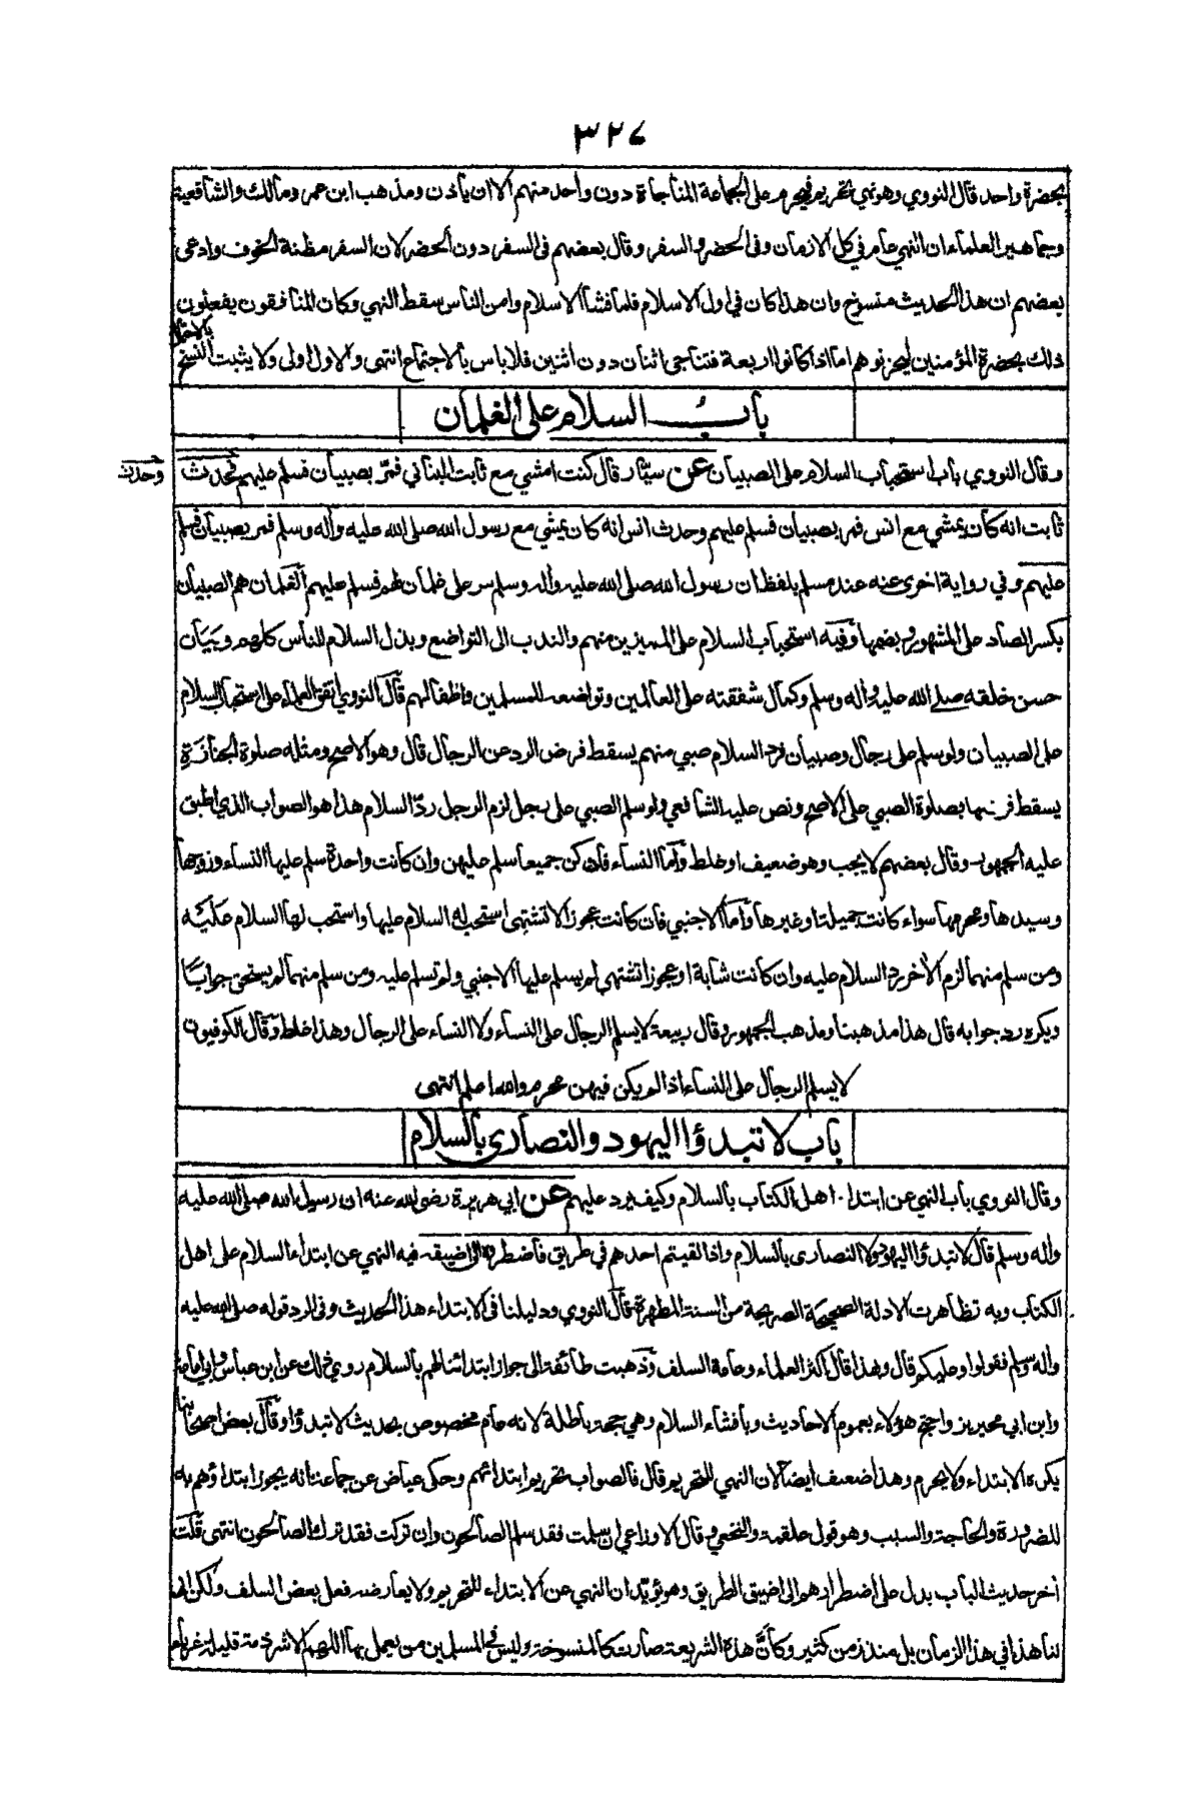 ٣٢٧
بحضرة واحد قال النووي وهو نهي تحريم فيحرم على الجماعة المناجاة دون واحد منهم الا ان يأذن ومذهب ابن عمر ومالك والشافعية
وجماهير العلماء ان النهي عام في كل الازمان وفى الحضر والسفر وقال بعضهم فى السفر دون الحضر لان السفر مظنة الخوف وادعى
بعضهم ان هذا الحديث منسوخ وان هذا كان في اول الاسلام فلما فشا الاسلام وامن الناس سقط النهي وكان المنافقون يفعلون
ذلك بحضرة المؤمنين ليحزنوهم اما اذا كانوا اربعة فتناجى اثنان دون اثنين فلا باس بالاجماع انتهى والاول اولى ولا يثبت النسخ
بالاحتمال
باب السلام على الغلمان
وقال النووي باب استحباب السلام على الصبيان عن سيّار قال كنت امشي مع ثابت البناني فمرّ بصبيان فسلم عليهم فحدث
وحدث
ثابت انه كان يمشي مع انس فمر بصبيان فسلم عليهم وحدث انس انه كان يمشي مع رسول الله صلى الله عليه وأله وسلم فمر بصبيان فسلم
عليهم وفي رواية اخرى عنه عند مسلم بلفظ ان رسول الله صلى الله عليه وأله وسلم مر على غلمان لهم فسلم عليهم الغلمان هم الصبيان
بكسر الصاد على المشهور وبضمها وفيه استحباب السلام على المميزين منهم والندب الى التواضع وبذل السلام للناس كلهم وبيان
حسن خلقه صلى الله عليه وأله وسلم وكمال شفقته على العالمين وتواضعه للمسلمين واطفالهم قال النووي اتفق العلماء على استحباب السلام
على الصبيان ولو سلم على رجال وصبيان فرد السلام صبي منهم يسقط فرض الرد عن الرجال قال وهو الاصح ومثله صلوة الجنازة
يسقط فرضها بصلوة الصبي على الاصح ونص عليه الشافعي ولو سلم الصبي على رجل لزم الرجل ردّ السلام هذا هو الصواب الذي اطبق
عليه الجمهور وقال بعضهم لا يجب وهو ضعيف او غلط وأما النساء فان كن جميعا سلم عليهن وان كانت واحدة سلم عليها النساء وزوجها
وسيدها ومحرمها سواء كانت جميلة او غيرها وأما الاجنبي فان كانت عجوزا لا تشتهى استحب له السلام عليها واستحب لها السلام عليه
ومن سلم منهما لزم الأخر رد السلام عليه وان كانت شابة او عجوزا تشتهى لم يسلم عليها الاجنبي ولم تسلم عليه ومن سلم منهما لم يستحق جوابا
ويكره رد جوابه قال هذا مذهبنا ومذهب الجمهور وقال ربيعة لا يسلم الرجال على النساء ولا النساء على الرجال وهذا غلط وقال الكوفيون
لا يسلم الرجال على النساء اذا لم يكن فيهن محرم والله اعلم انتهى
باب لا تبدؤا اليهود والنصارى بالسلام
وقال النووي باب النهي عن ابتداء اهل الكتاب بالسلام وكيف يرد عليهم عن ابي هريرة رضي الله عنه ان رسول الله صلى الله عليه
وأله وسلم قال لا تبدؤا اليهود ولا النصارى بالسلام واذا لقيتم احدهم في طريق فاضطروه الى اضيقه فيه النهي عن ابتداء السلام على اهل
الكتاب وبه تظاهرت الادلة الصحيحة الصريحة من السنة المطهرة قال النووي ودليلنا فى الابتداء هذا الحديث وفى الرد قوله صلى الله عليه
وأله وسلم فقولوا وعليكم قال وهذا قال اكثر العلماء وعامة السلف وذهبت طائفة الى جواز ابتدائنا لهم بالسلام روي ذلك عن ابن عباس وابي امامة
وابن ابي محيريز واحتج هؤلاء بعموم الاحاديث وبافشاء السلام وهي حجة باطلة لانه عام مخصوص بحديث لا تبدؤا وقال بعض اصحابنا
يكره الابتداء ولا يحرم وهذا ضعيف ايضا لان النهي للتحريم قال فالصواب تحريم ابتدائهم وحكى عياض عن جماعة انه يجوز ابتداؤهم به
للضرورة والحاجة والسبب وهو قول علقمة والنخعي وقال الاوزاعي ان سلمت فقد سلم الصالحون وان تركت فقد ترك الصالحون انتهى قلت
أخر حديث الباب يدل على اضطرارهم الى اضيق الطريق وهو يؤيد ان النهي عن الابتداء للتحريم ولا يعارضه فعل بعض السلف ولكن
لنا هذا في هذا الزمان بل منذ زمن كثير وكأنّ هذه الشريعة صارت كالمنسوخة وليس في المسلمين من يعمل بها اللهم الا شرذمة قليلة غرباء